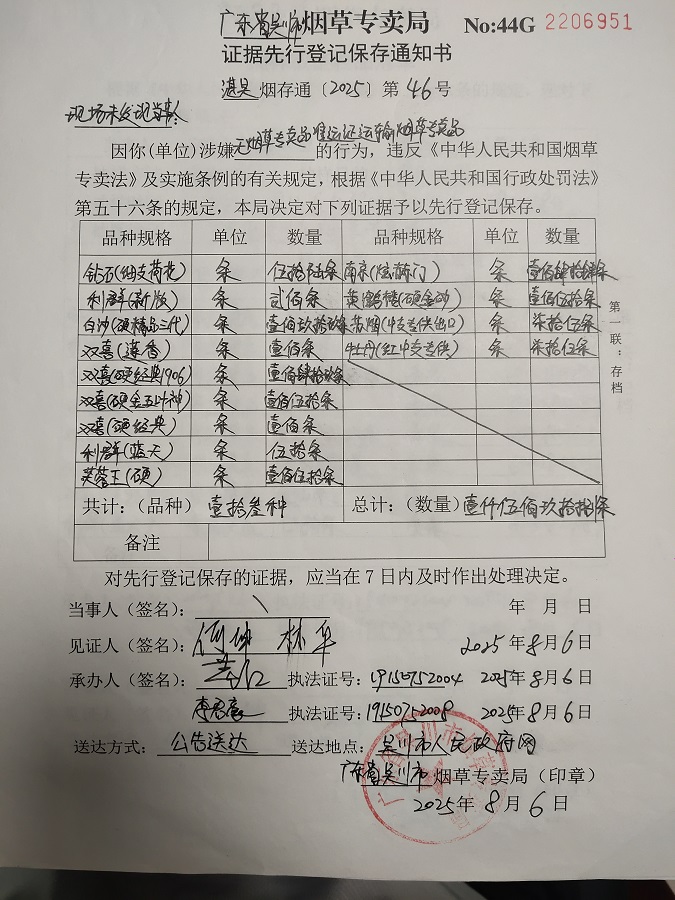 广东省吴川市烟草专卖局 No:44G 2206951
证据先行登记保存通知书
湛吴烟存通〔2025〕第46号
现场未发现当事人:
因你(单位)涉嫌无烟草专卖品准运证运输烟草专卖品的行为，违反《中华人民共和国烟草
专卖法》及实施条例的有关规定，根据《中华人民共和国行政处罚法》
第五十六条的规定，本局决定对下列证据予以先行登记保存。
品种规格 单位 数量 品种规格 单位 数量
钻石(细支荷花) 条 伍拾陆条 南京(炫赫门) 条 壹佰肆拾肆条
利群(新版) 条 贰佰条 黄鹤楼(硬金砂) 条 壹佰伍拾条
白沙(硬精品三代) 条 壹佰玖拾玖条 苏烟(中支专供出口) 条 柒拾伍条
双喜(莲香) 条 壹佰条 牡丹(红中支专供) 条 柒拾伍条
双喜(硬经典1906) 条 壹佰肆拾玖条
双喜(硬金五叶神) 条 壹佰伍拾条
双喜(硬经典) 条 壹佰条
利群(蓝天) 条 伍拾条
芙蓉王(硬) 条 壹佰伍拾条
共计：(品种) 壹拾叁种 总计：(数量) 壹仟伍佰玖拾捌条
备注
第一联：存档
对先行登记保存的证据，应当在7日内及时作出处理决定。
当事人(签名)： 年 月 日
见证人(签名)： 林华 2025年8月6日
承办人(签名)： 执法证号：19150752004 2025年8月6日
执法证号：19150752008 2025年8月6日
送达方式：公告送达 送达地点：吴川市人民政府网
广东省吴川市烟草专卖局（印章）
2025年8月6日